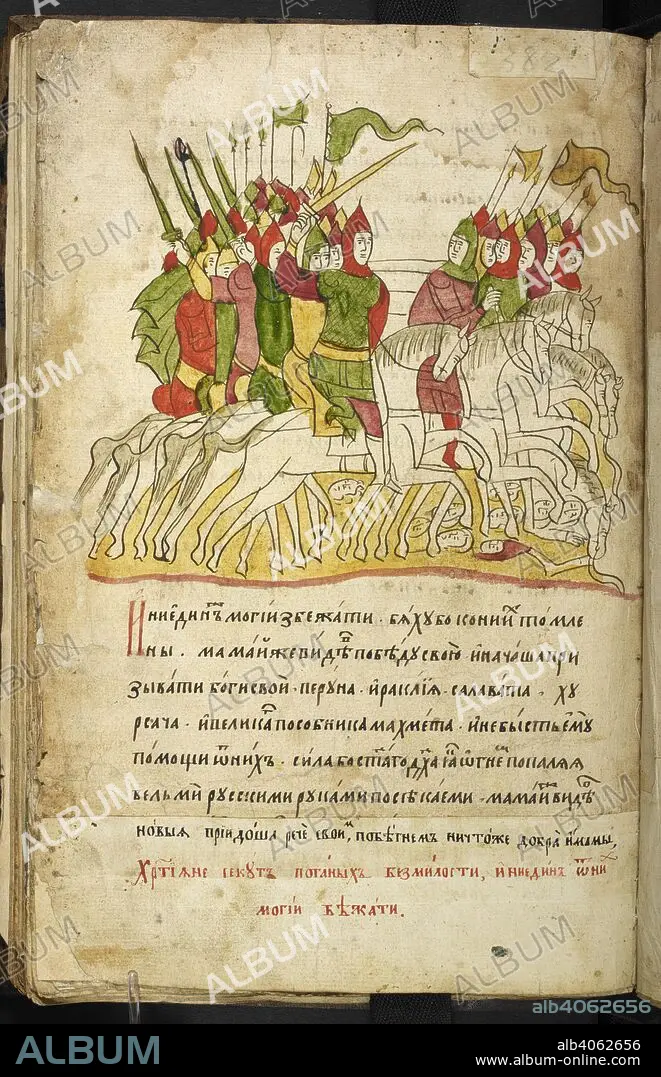 382
И҆ ниеди́нъ могі́и збежа́ти · бѧ́ху бо ко́ни и҆х то́мле
ны · мама́й же ви́дѣв побѣ́ду свою̀ и҆ нача́ша при
зыва́ти бо́ги свои̑ · перу́на · и҆ра́клїѧ · сала́вата · ху
рса́ча · и҆ вели́каг посо́бника ма́хмета · и҆ не бы́сть є҆мꙋ̀
по́мощи ѿ ни́хъ · си́ла бо ст҃а́гѡ дх҃а ꙗ҆́кѡ ѻ҆́гнем попалѧ́ѧ
вельмѝ ру́сскими рука́ми посѣка́еми · мама́й ви́дѣв
но́выѧ прїидо́ша рече̑ свои̑м, побѣ́гнем ничто́же добра̀ и҆́мамы,
Хрⷭ҇тїѧне секутъ поганыхъ безмилости, и҆ ниединъ ѿ них
могїи бѣжати.
alb4062656
ALBUM
alb4062656
www.album-online.com